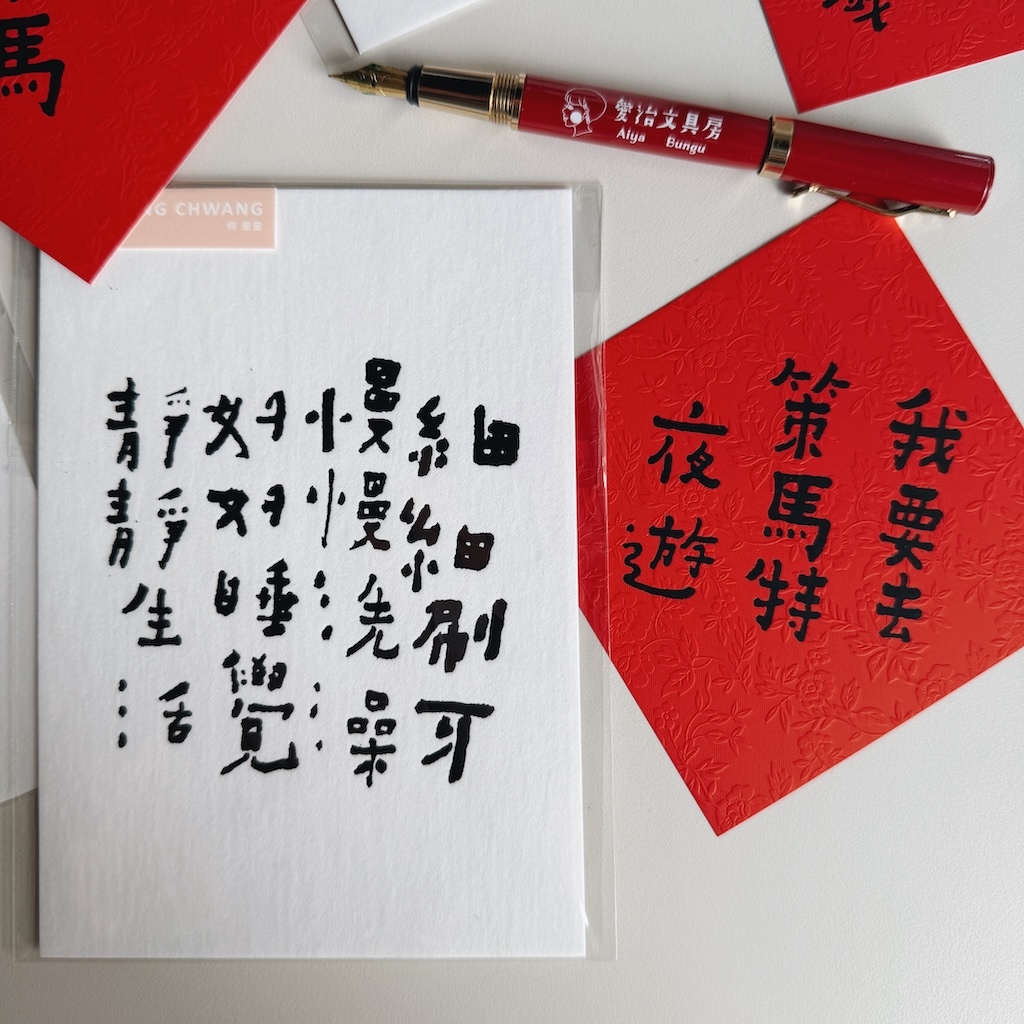 馬
愛治文具房
Aiya Bungu
NG CHWANG
細細刷牙
慢慢洗澡
好好睡覺
靜靜生活
我要去
策馬特
夜遊